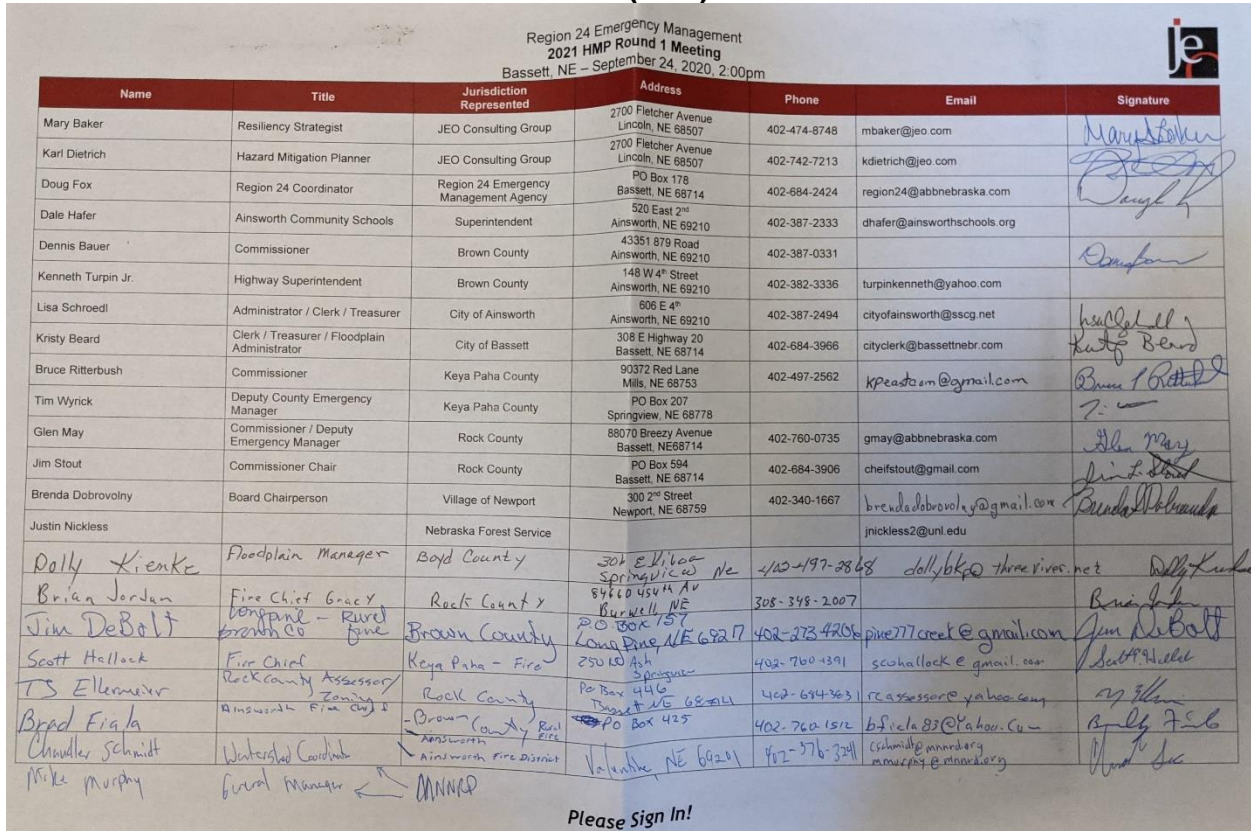 Region 24 Emergency Management
2021 HMP Round 1 Meeting
Bassett, NE – September 24, 2020, 2:00pm
je
Name Title Jurisdiction Represented Address Phone Email Signature
Mary Baker Resiliency Strategist JEO Consulting Group 2700 Fletcher Avenue Lincoln, NE 68507 402-474-8748 mbaker@jeo.com
Karl Dietrich Hazard Mitigation Planner JEO Consulting Group 2700 Fletcher Avenue Lincoln, NE 68507 402-742-7213 kdietrich@jeo.com
Doug Fox Region 24 Coordinator Region 24 Emergency Management Agency PO Box 178 Bassett, NE 68714 402-684-2424 region24@abbnebraska.com
Dale Hafer Ainsworth Community Schools Superintendent 520 East 2nd Ainsworth, NE 69210 402-387-2333 dhafer@ainsworthschools.org
Dennis Bauer Commissioner Brown County 43351 879 Road Ainsworth, NE 69210 402-387-0331
Kenneth Turpin Jr. Highway Superintendent Brown County 148 W 4th Street Ainsworth, NE 69210 402-382-3336 turpinkenneth@yahoo.com
Lisa Schroedl Administrator / Clerk / Treasurer City of Ainsworth 606 E 4th Ainsworth, NE 69210 402-387-2494 cityofainsworth@sscg.net
Kristy Beard Clerk / Treasurer / Floodplain Administrator City of Bassett 308 E Highway 20 Bassett, NE 68714 402-684-3966 cityclerk@bassettnebr.com
Bruce Ritterbush Commissioner Keya Paha County 90372 Red Lane Mills, NE 68753 402-497-2562 kpeastcom@gmail.com
Tim Wyrick Deputy County Emergency Manager Keya Paha County PO Box 207 Springview, NE 68778
Glen May Commissioner / Deputy Emergency Manager Rock County 88070 Breezy Avenue Bassett, NE68714 402-760-0735 gmay@abbnebraska.com Glen May
Jim Stout Commissioner Chair Rock County PO Box 594 Bassett, NE 68714 402-684-3906 cheifstout@gmail.com Jim L. Stout
Brenda Dobrovolny Board Chairperson Village of Newport 300 2nd Street Newport, NE 68759 402-340-1667 brendadobrovolny@gmail.com
Justin Nickless Nebraska Forest Service jnickless2@unl.edu
Dolly Kienke Floodplain Manager Boyd County Springview Ne 402-497-2868 dollybkp@threeriver.net
Brian Jordan Fire Chief Gracy Rock County 84660 454th Av Burwell, NE 308-348-2007
Jim DeBolt Longpine - Rural Brown Co fire Brown County P.O. Box 157 Long Pine, NE 69217 402-273-4206 pine777creek@gmail.com Jim DeBolt
Scott Hallock Fire Chief Keya Paha - Fire Ash Springview 402-760-1391 scohallock@gmail.com
TJ Ellermeier Rock County Assessor/ Zoning Rock County Po Box 446 Bassett NE 68714 402-684-3631 rcassessor@yahoo.com
Brad Fiala Ainsworth Fire Chief - Brown County Rural Fire Ainsworth PO Box 425 402-760-1512 bfiala83@Yahoo.Com
Chandler Schmidt Watershed Coordinator Ainsworth Fire District Valentine, NE 69201 402-376-3241 cschmidt@mnnrd.org mmurphy@mnnrd.org
Mike Murphy General Manager MNNRD
Please Sign In!